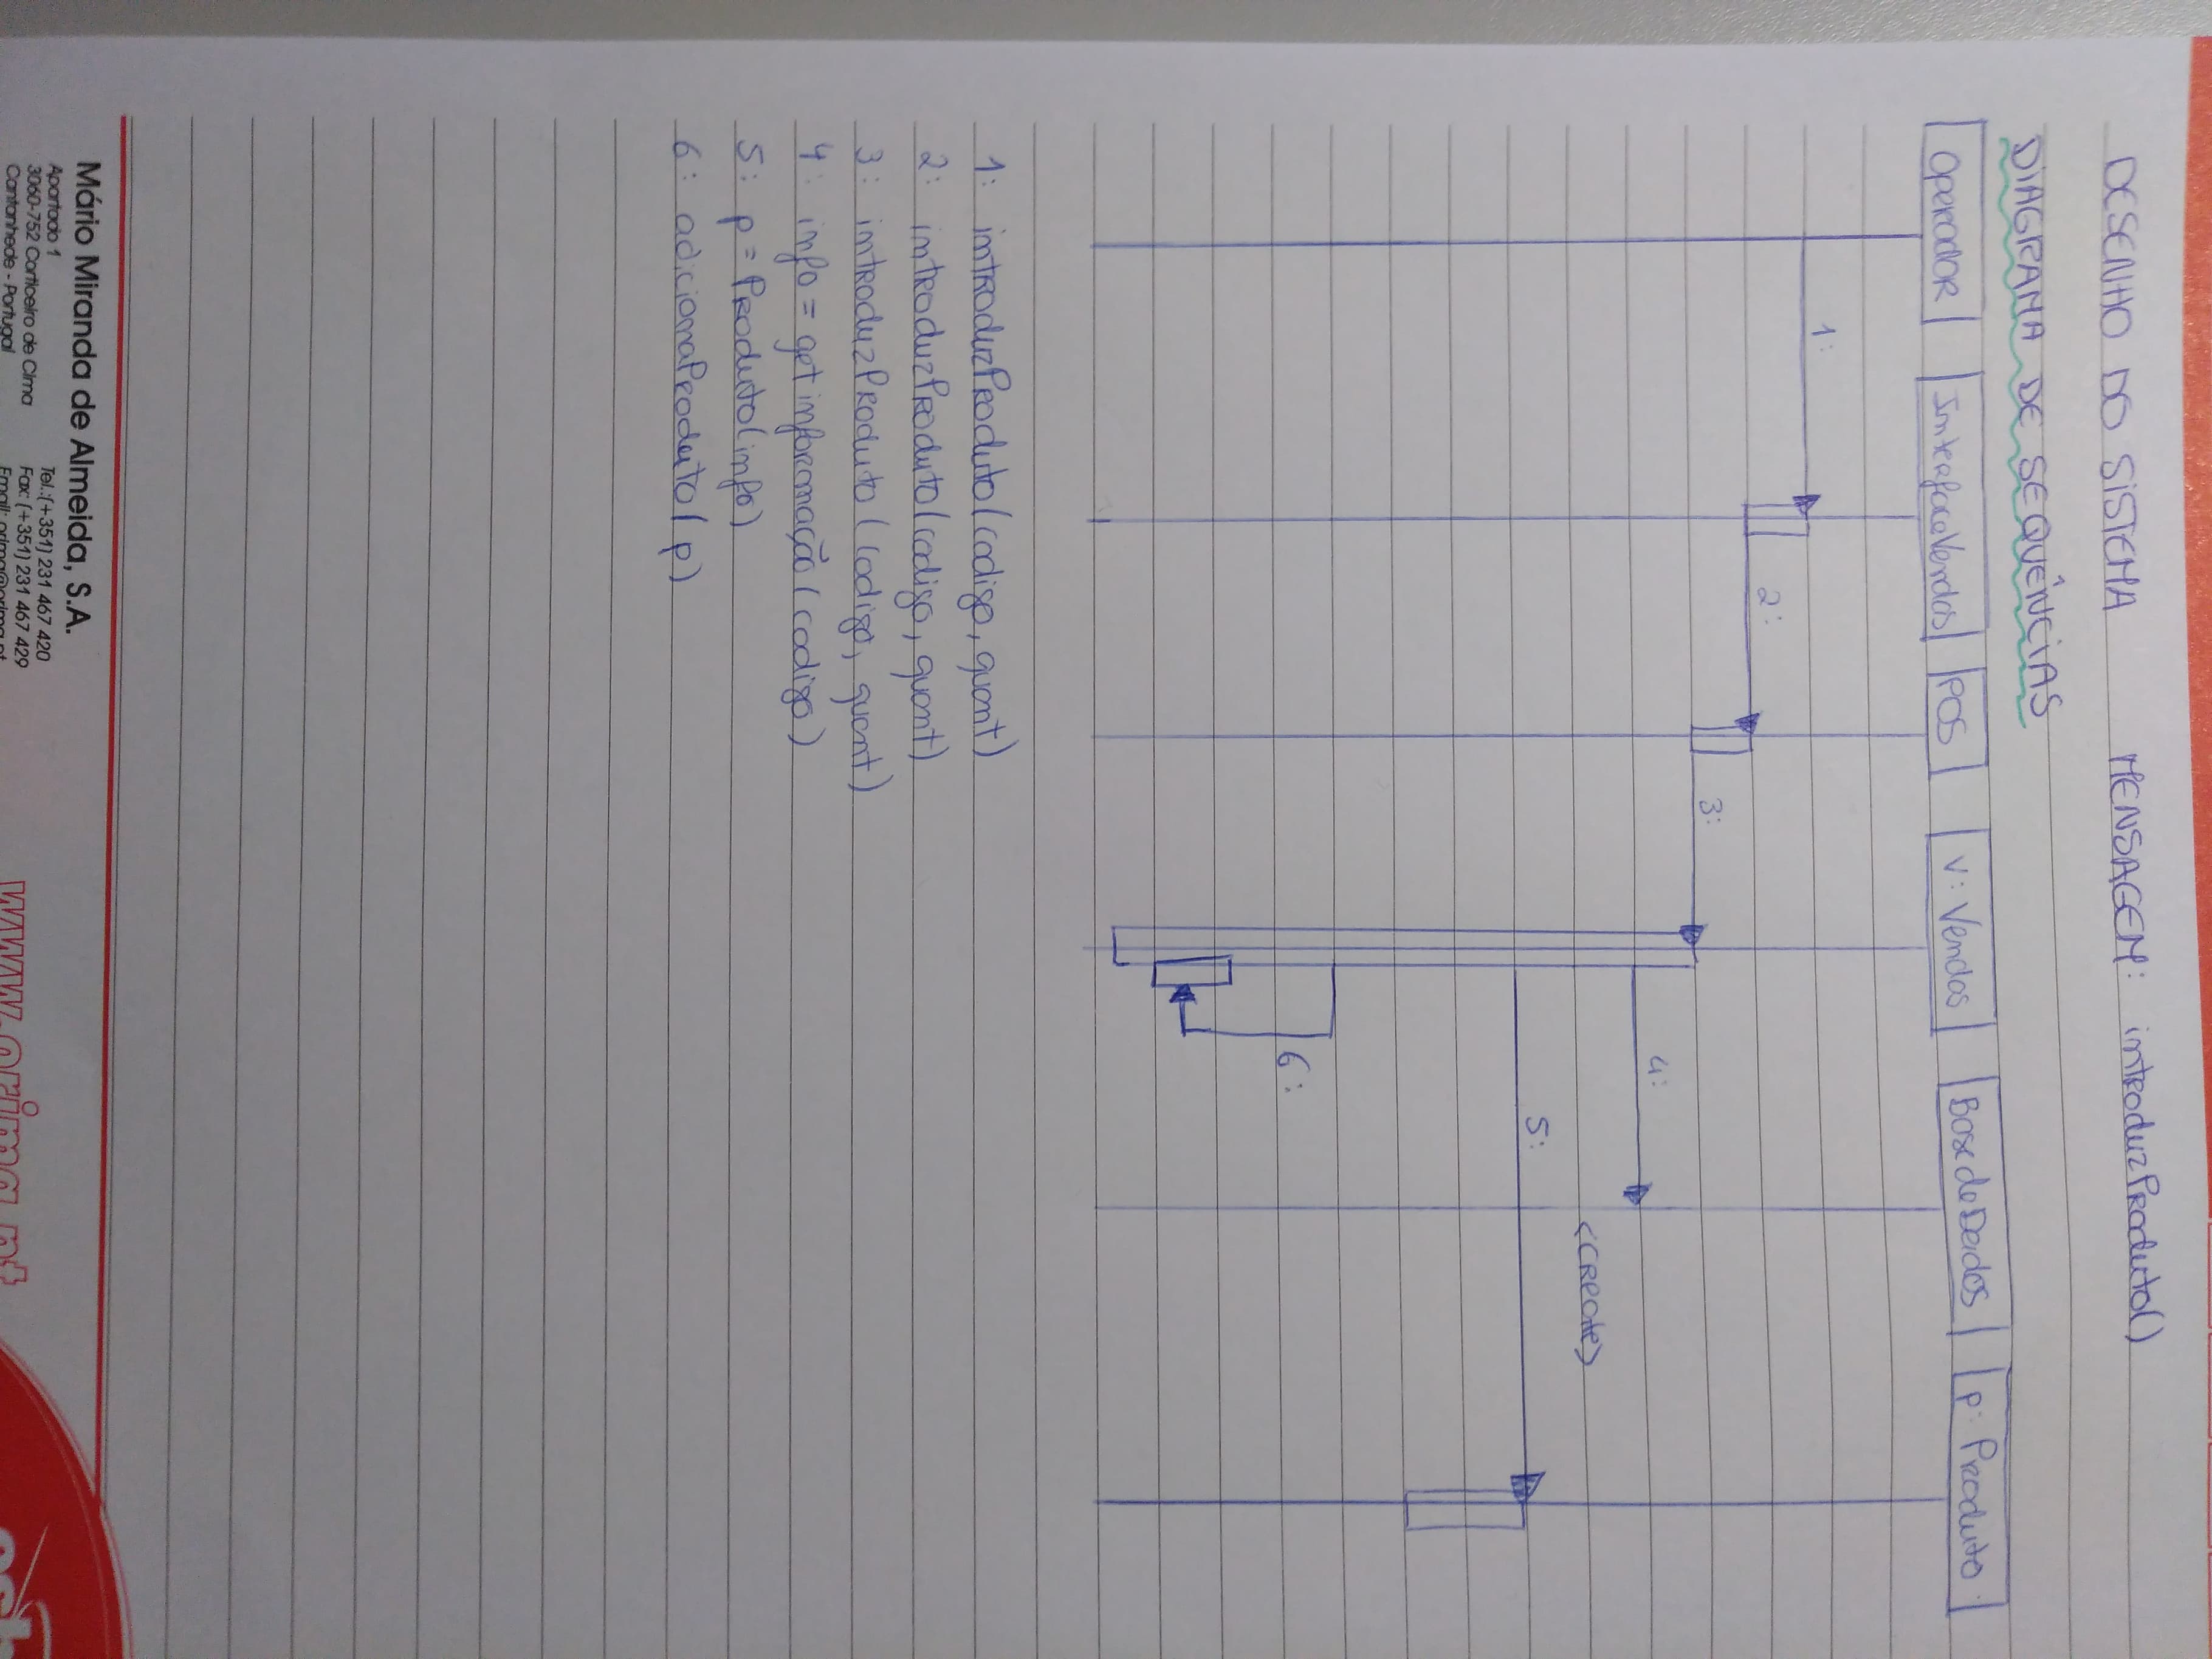 DESENHO DO SISTEMA MENSAGEM: introduzProduto()
DIAGRAMA DE SEQUÊNCIAS
Operador InterfaceVendas POS v: Vendas BasedeDados p: Produto
1:
2:
3:
4:
<create>
5:
6:
1: introduzProduto(codigo, quant)
2: introduzProduto(codigo, quant)
3: introduzProduto(codigo, quant)
4: info = getinformação(codigo)
5: p = Produto(info)
6: adicionaProduto(p)
Mário Miranda de Almeida, S.A.
Apartado 1
3060-752 Corticeiro de Cima
Cantanhede - Portugal
Tel.:(+351) 231 467 420
Fax: (+351) 231 467 429
Email: orima@orima.pt
www.orima.pt